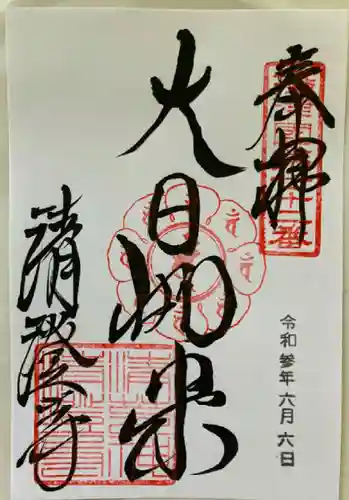 奉拝
大日如来
令和参年六月六日
清澄寺